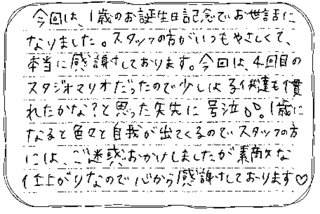 今回は、1歳のお誕生日記念でお世話に
なりました。スタッフの方がいつもやさしくて、
本当に感謝しております。今回は、4回目の
スタジオマリオだったので少しは子供達も慣
れたかな?と思った矢先に号泣。1歳に
なると色々と自我が出てくるのでスタッフの方
には、ご迷惑おかけしましたが素敵な
仕上がりなので心から感謝しております♡